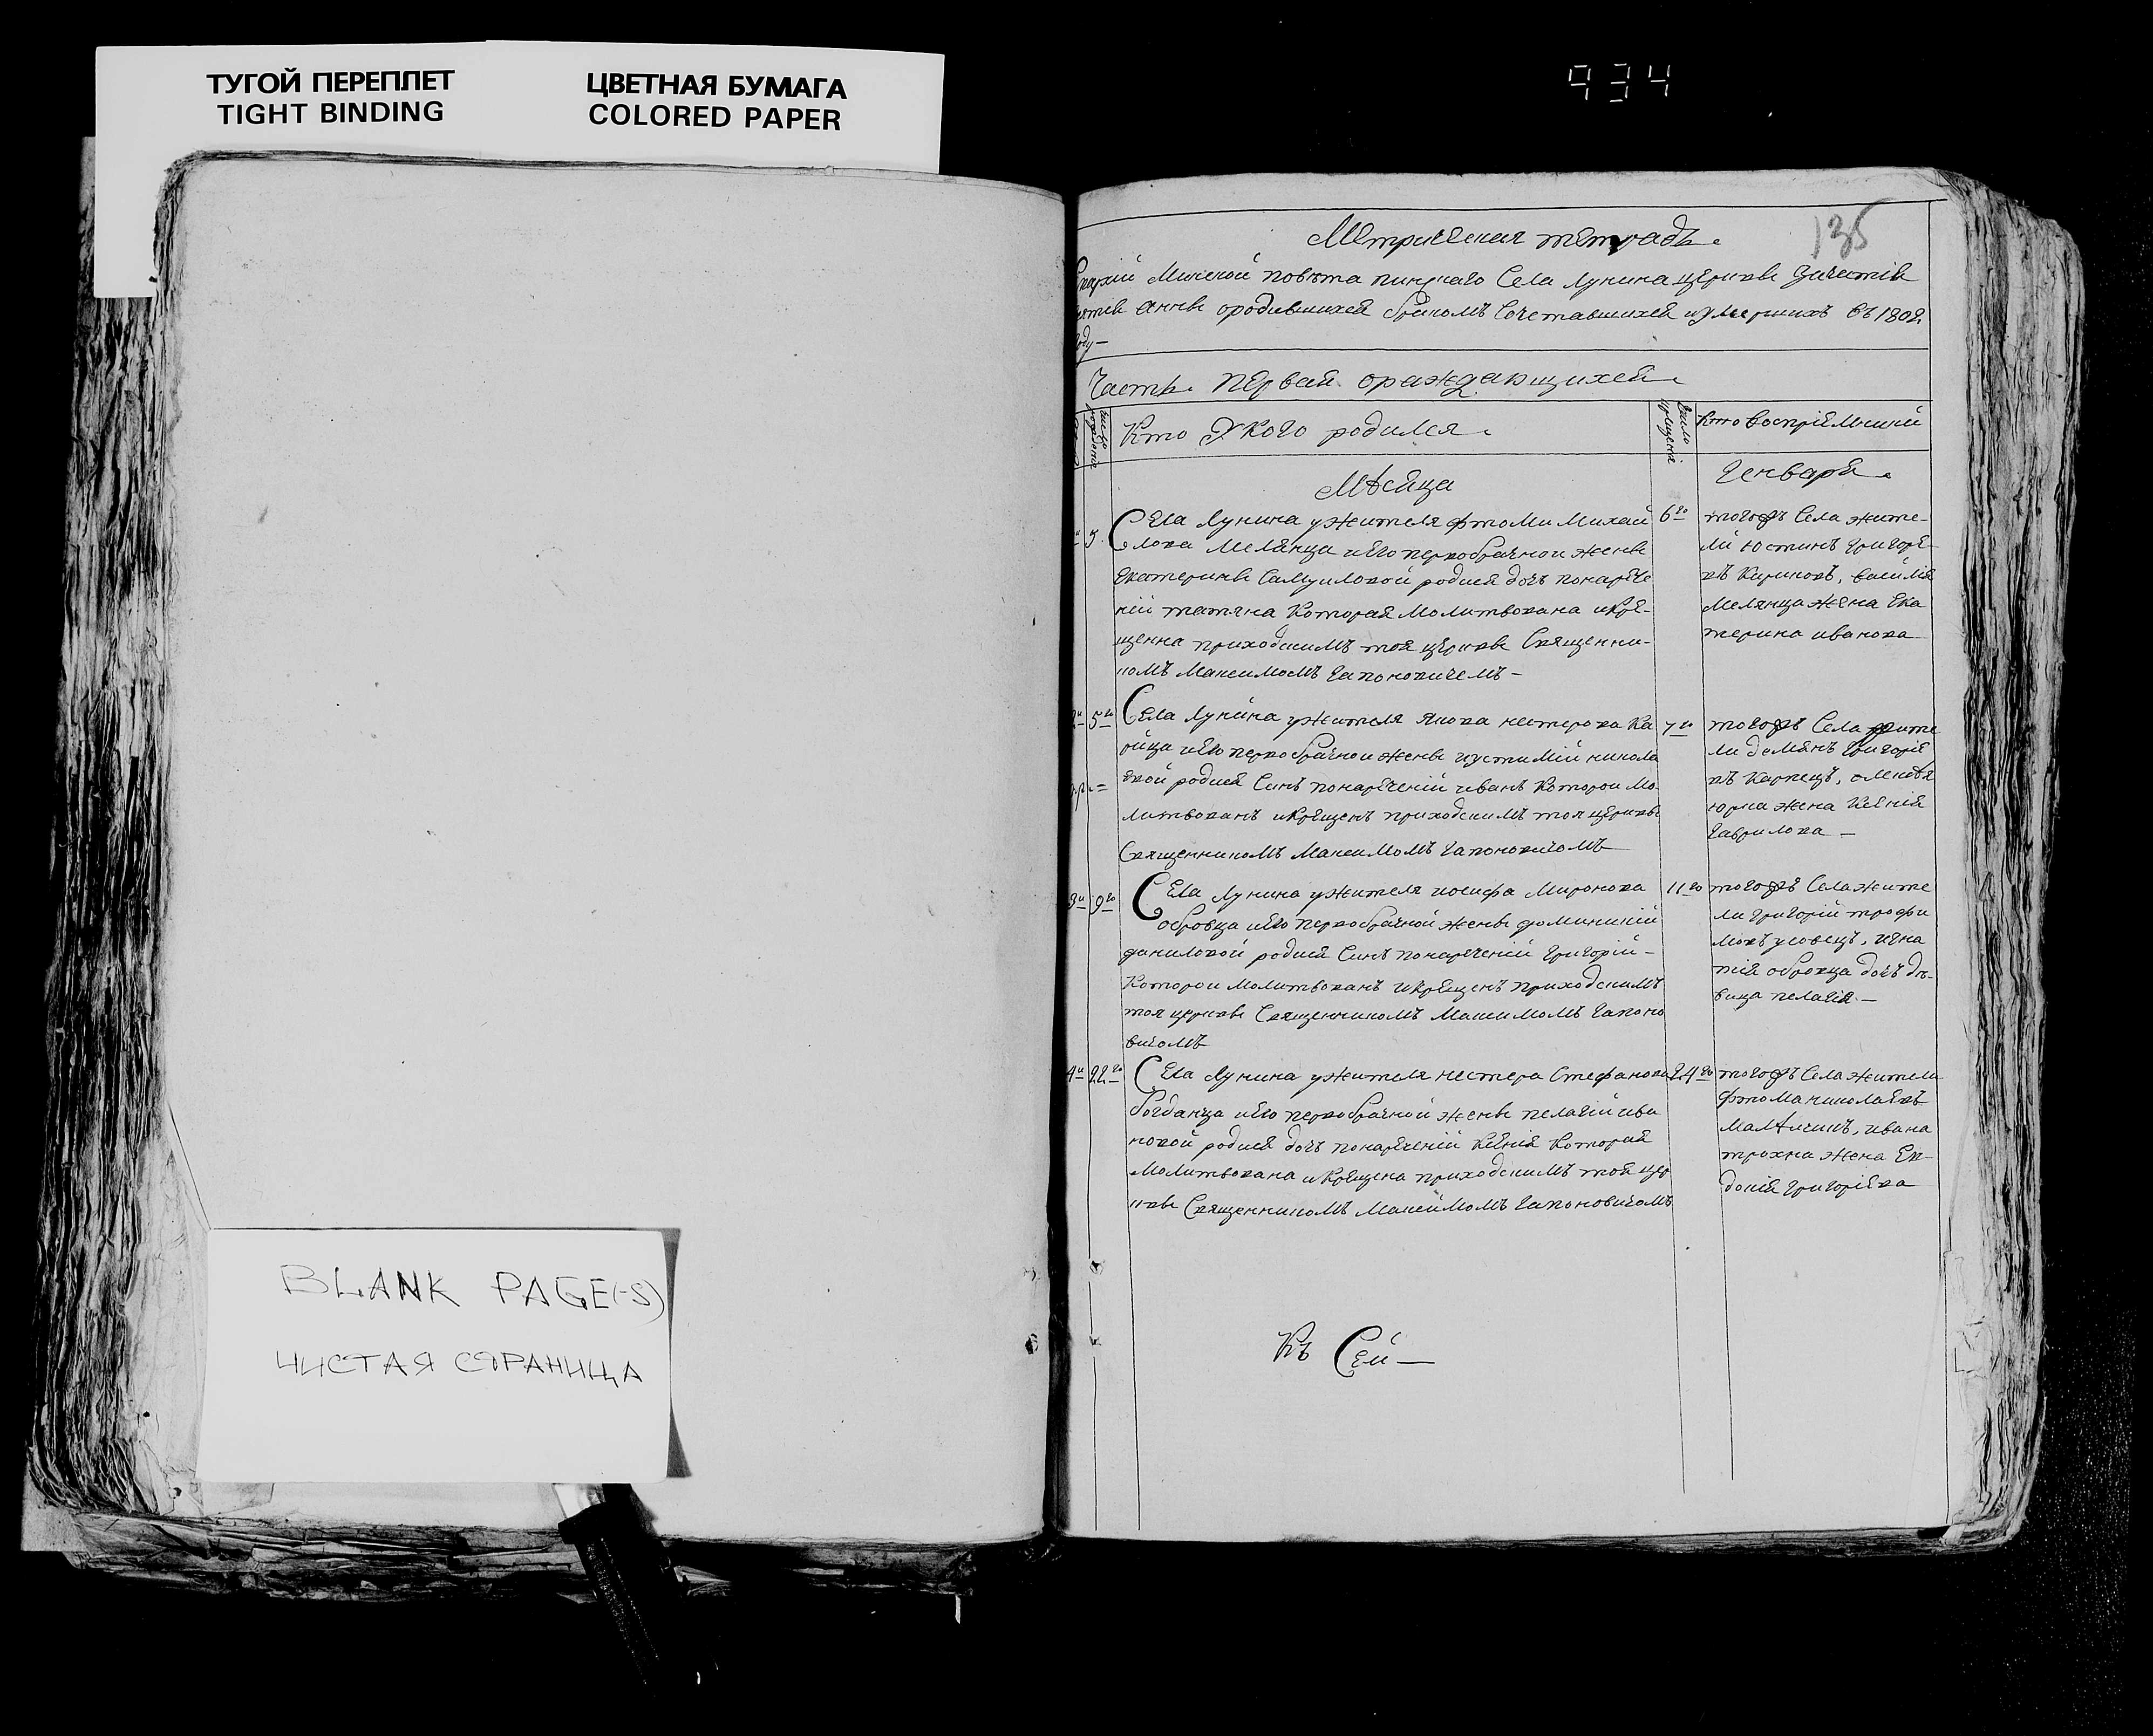 ТУГОЙ ПЕРЕПЛЕТ
TIGHT BINDING
ЦВЕТНАЯ БУМАГА
COLORED PAPER
934
135
Метрическая тетрадь.
Епархій Минской повѣта пинскаго Села Лунина церкви Зачатія
святія Анны ородившихся бракомъ Сочетавшихся иумершихъ въ 1802
году —
Часть. первая. ораждающихся.
Число рожденія
Кто Укого родился.
Число крещенія
Кто Воспріемники
Мѣсяца
Генваря.
5
Села Лунина ужителя фтоми Михаи
лова Мелянца иего первобрачнои жены
Екатерины Самуиловой родися дочъ понарече
ніи татяна Которая Молитвована икре-
щенна приходскимъ тоя церкви Священни-
комъ Максимомъ Гапоновичемъ —
6го
тогожъ Села жите-
ли Юстинъ григорѣ-
въ Кириловъ, василія
Мелянца жена Ека
терина иванова
2и 5го
Села Лунина ужителя Якова нестерова Ка
рпца иего первобрачнои жены иустиміи никола
евой родися Синъ понареченіи иванъ Которои Мо
литвованъ икрещенъ приходскимъ тоя церкви
Священникомъ Максимомъ Гапоновичомъ
7го
тогожъ Села жите
ли демянъ Григорѣ
въ Карпецъ,
юрка жена Ксенія
Гаврилова —
3и 9го
Села Лунина ужителя иосифа Миронова
обровца иего первобрачной жены доминикіи
даниловой родися Синъ понареченіи григорій —
Которои Молитвованъ икрещенъ приходскимъ
тоя церкви Священникомъ Максимомъ Гапоно
вичомъ
11го
тогожъ Села жите
ли григорій трофи
мовъ усовецъ, игна
тія обровца дочъ дѣ-
вица пелагія —
4и 22го
Села Лунина ужителя нестера Стефанова
богданца иего первобрачной жены пелагіи ива
новой родися дочъ понареченіи Ксенія Которая
Молитвована икрещена приходскимъ тоя цер
кви Священникомъ Максимомъ Гапоновичомъ
24го
тогожъ Села жители
фтома николаевъ
малѣчикъ, ивана
трохна жена Ев-
докія григоріева
Къ Сей —
BLANK PAGE(-S)
ЧИСТАЯ СТРАНИЦА